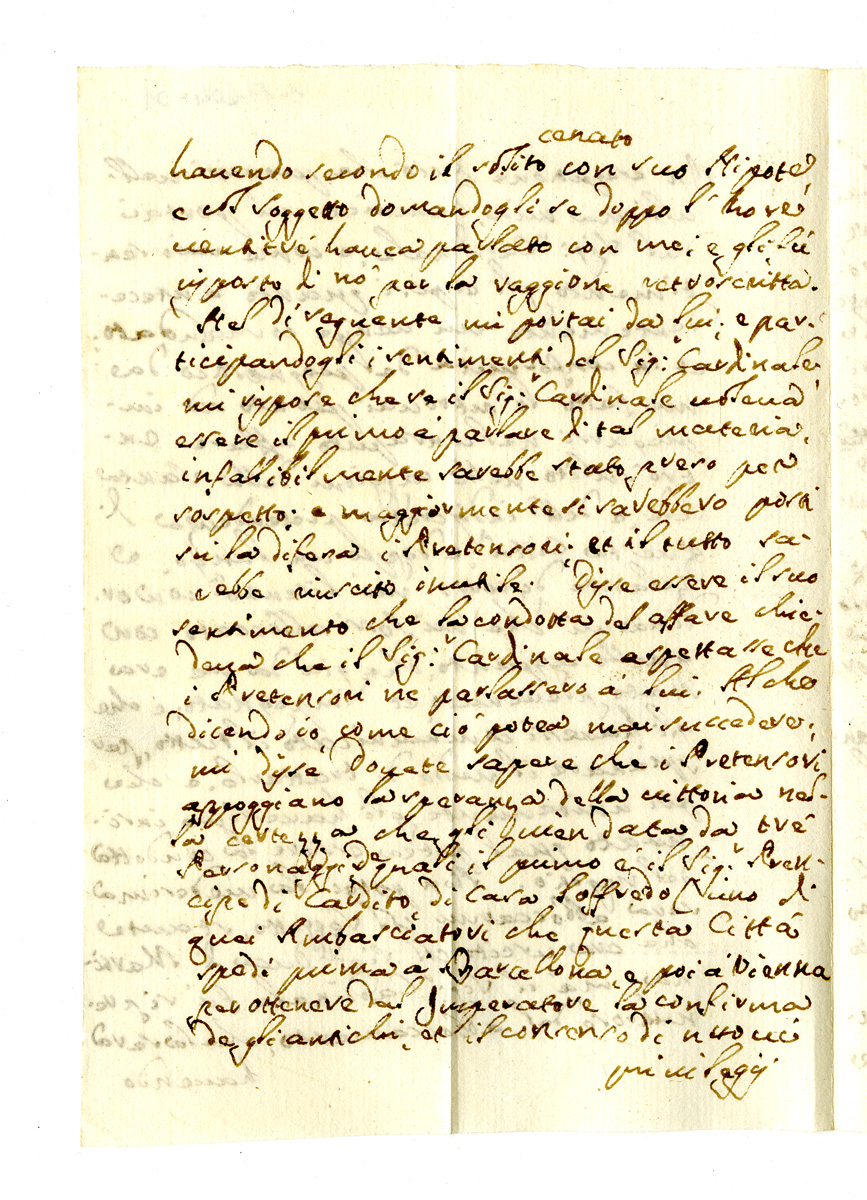 cenato
havendo secondo il solito con suo Nipote,
e col soggetto domandogli se doppo l'hore
ventitré havea parlato con me, e gli fù
risposto di nò per la raggione retroscritta.
Nel dì seguente mi portai da lui, e par-
ticipandogli i sentimenti del Sig.r Cardinale
mi rispose che se il Sig.r Cardinale voleva
essere il primo à parlare di tal materia,
infallibilmente sarebbe stato preso per
sospetto; e maggiormente si sarebbero posti
sù la difesa i Pretensori, et il tutto sa-
rebbe riuscito inutile. Disse essere il suo
sentimento che la condotta del affare chie-
deva che il Sig.r Cardinale aspettasse che
i Pretensori ne parlassero à lui. Al che
dicendo io come ciò potea mai succedere,
mi disse dovete sapere che i Pretensori
appoggiano la speranza della vittoria nel-
la certezza che gli vien data da trè
Personaggi de quali il primo è il Sig.r Pren-
cipe di Cardito di Casa Loffredo (uno di
quei Ambasciatori che questa Città
spedì prima à Barcellona, e poi à Vienna
per ottenere dal Imperatore la confirma
degli antichi, et il consenso di nuovi
privilegij